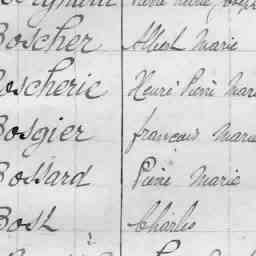 Boscher Albert Marie
Boscherie Henri Pierre Marie
Bosgier François Marie
Bossard Pierre Marie
Bost Charles